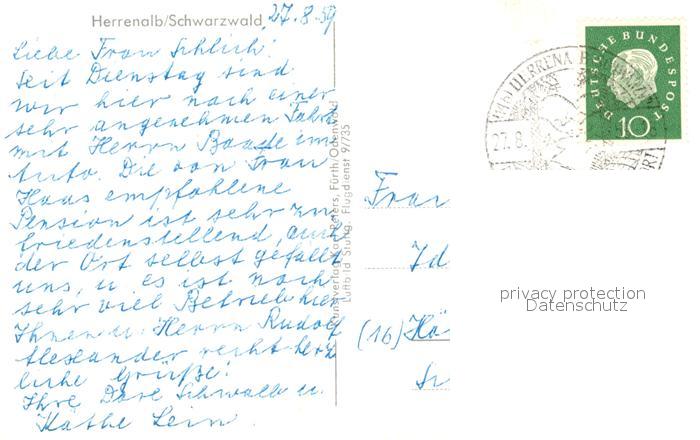 Herrenalb/Schwarzwald, 27.8.59
Liebe Frau Schlich!
Seit Dienstag sind
wir hier nach einer
sehr angenehmen Fahrt
mit Herrn Baade im
Auto. Die von Frau
Haas empfohlene
Pension ist sehr zu-
friedenstellend, auch
der Ort selbst gefällt
uns, u. es ist noch
sehr viel Betrieb hier
Ihnen u. Herrn Rudolf
Alexander recht herz-
liche Grüße!
Ihre Dore Schwalb u.
Käthe Lein.
Peters, Fürth/Odenwald
Flugdienst 9/735
DEUTSCHE BUNDESPOST
10
HERRENA
27.8.
Frau
Id
(16) Hä
privacy protection
Datenschutz